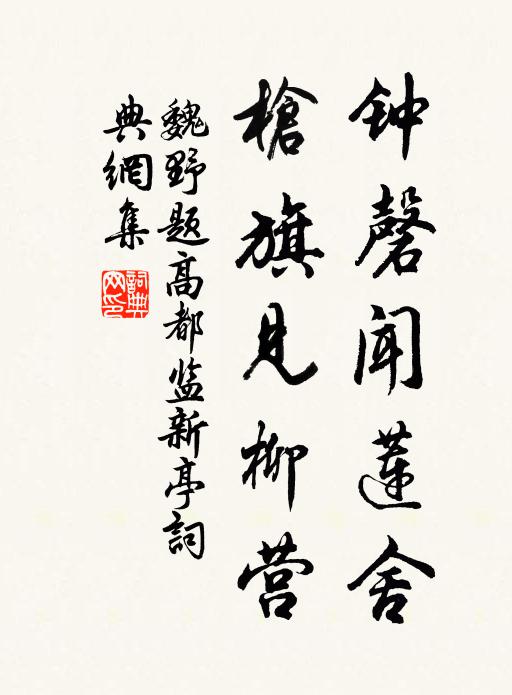 钟磬闻莲舍
槍旗見柳营
魏野题高都监新亭詞
典網集
詞典网印